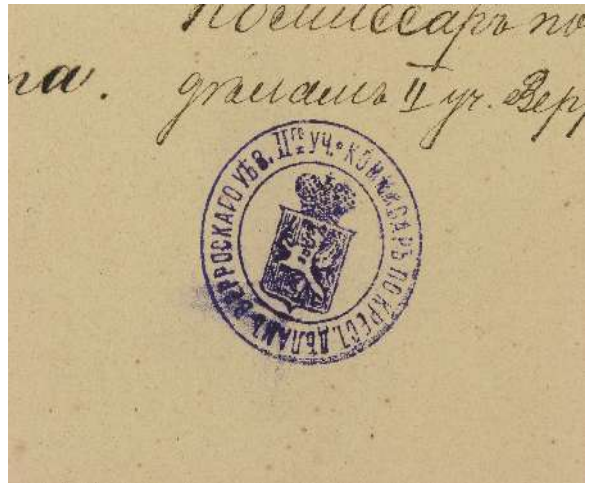 Коммиссаръ по
га.
дѣламъ II уч. Верр
КОММИСАРЪ ПО КРЕСТ. ДѢЛАМЪ ВЕРРОСКАГО УѢЗ. IIго УЧ.